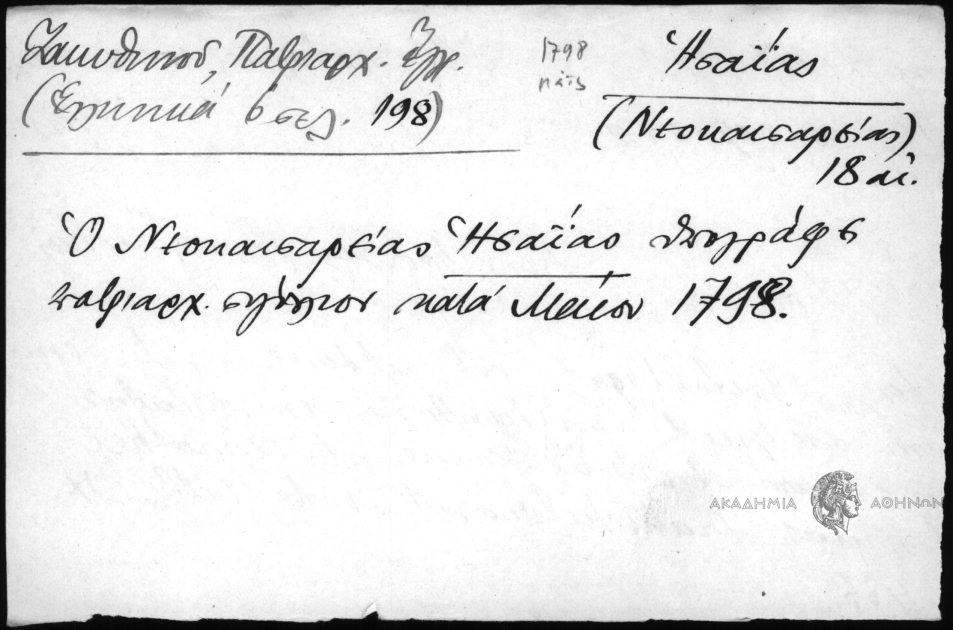 Ζακυθηνοῦ, Πατριαρχ. Ἔγγρ.
(Ἑλληνικά 6 σελ. 198)
1798
μάϊς
Ἡσαΐας
(Νεοκαισαρείας)
18 αἰ.
Ὁ Νεοκαισαρείας Ἡσαΐας ὑπογράφει
πατριαρχ. σιγίλλιον κατά Μάϊον 1798.
ΑΚΑΔΗΜΙΑ ΑΘΗΝΩΝ